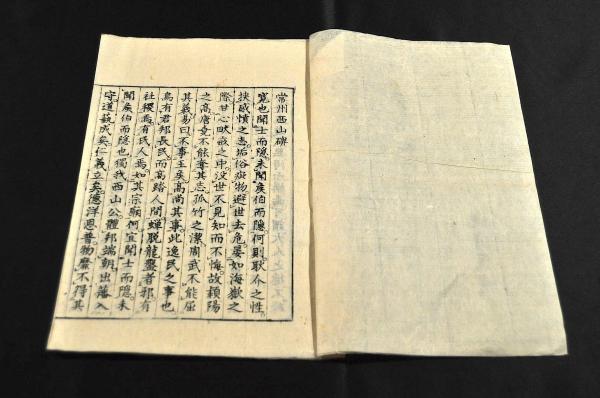 常州西山碑
寬也聞士而隱未聞矦伯而隱何則耿介之性
挾感憤之志垢俗疾物避世去危晏如海嶽之
際甘心畎畝之中没世不見知而不悔故潁陽
之高唐堯不能奪其志孤竹之潔周武不能屈
其義易曰不事王矦高尚其事此逸民之事也
烏有君邦長民而高踏人間蟬脱龍盤者邪有
社稷焉有民人焉如其宗廟何宜聞士而隱未
聞矦伯而隱也獨我西山公體邦端朝出藩入
守道藝成矣仁義立矣德洋恩普物靡不得其